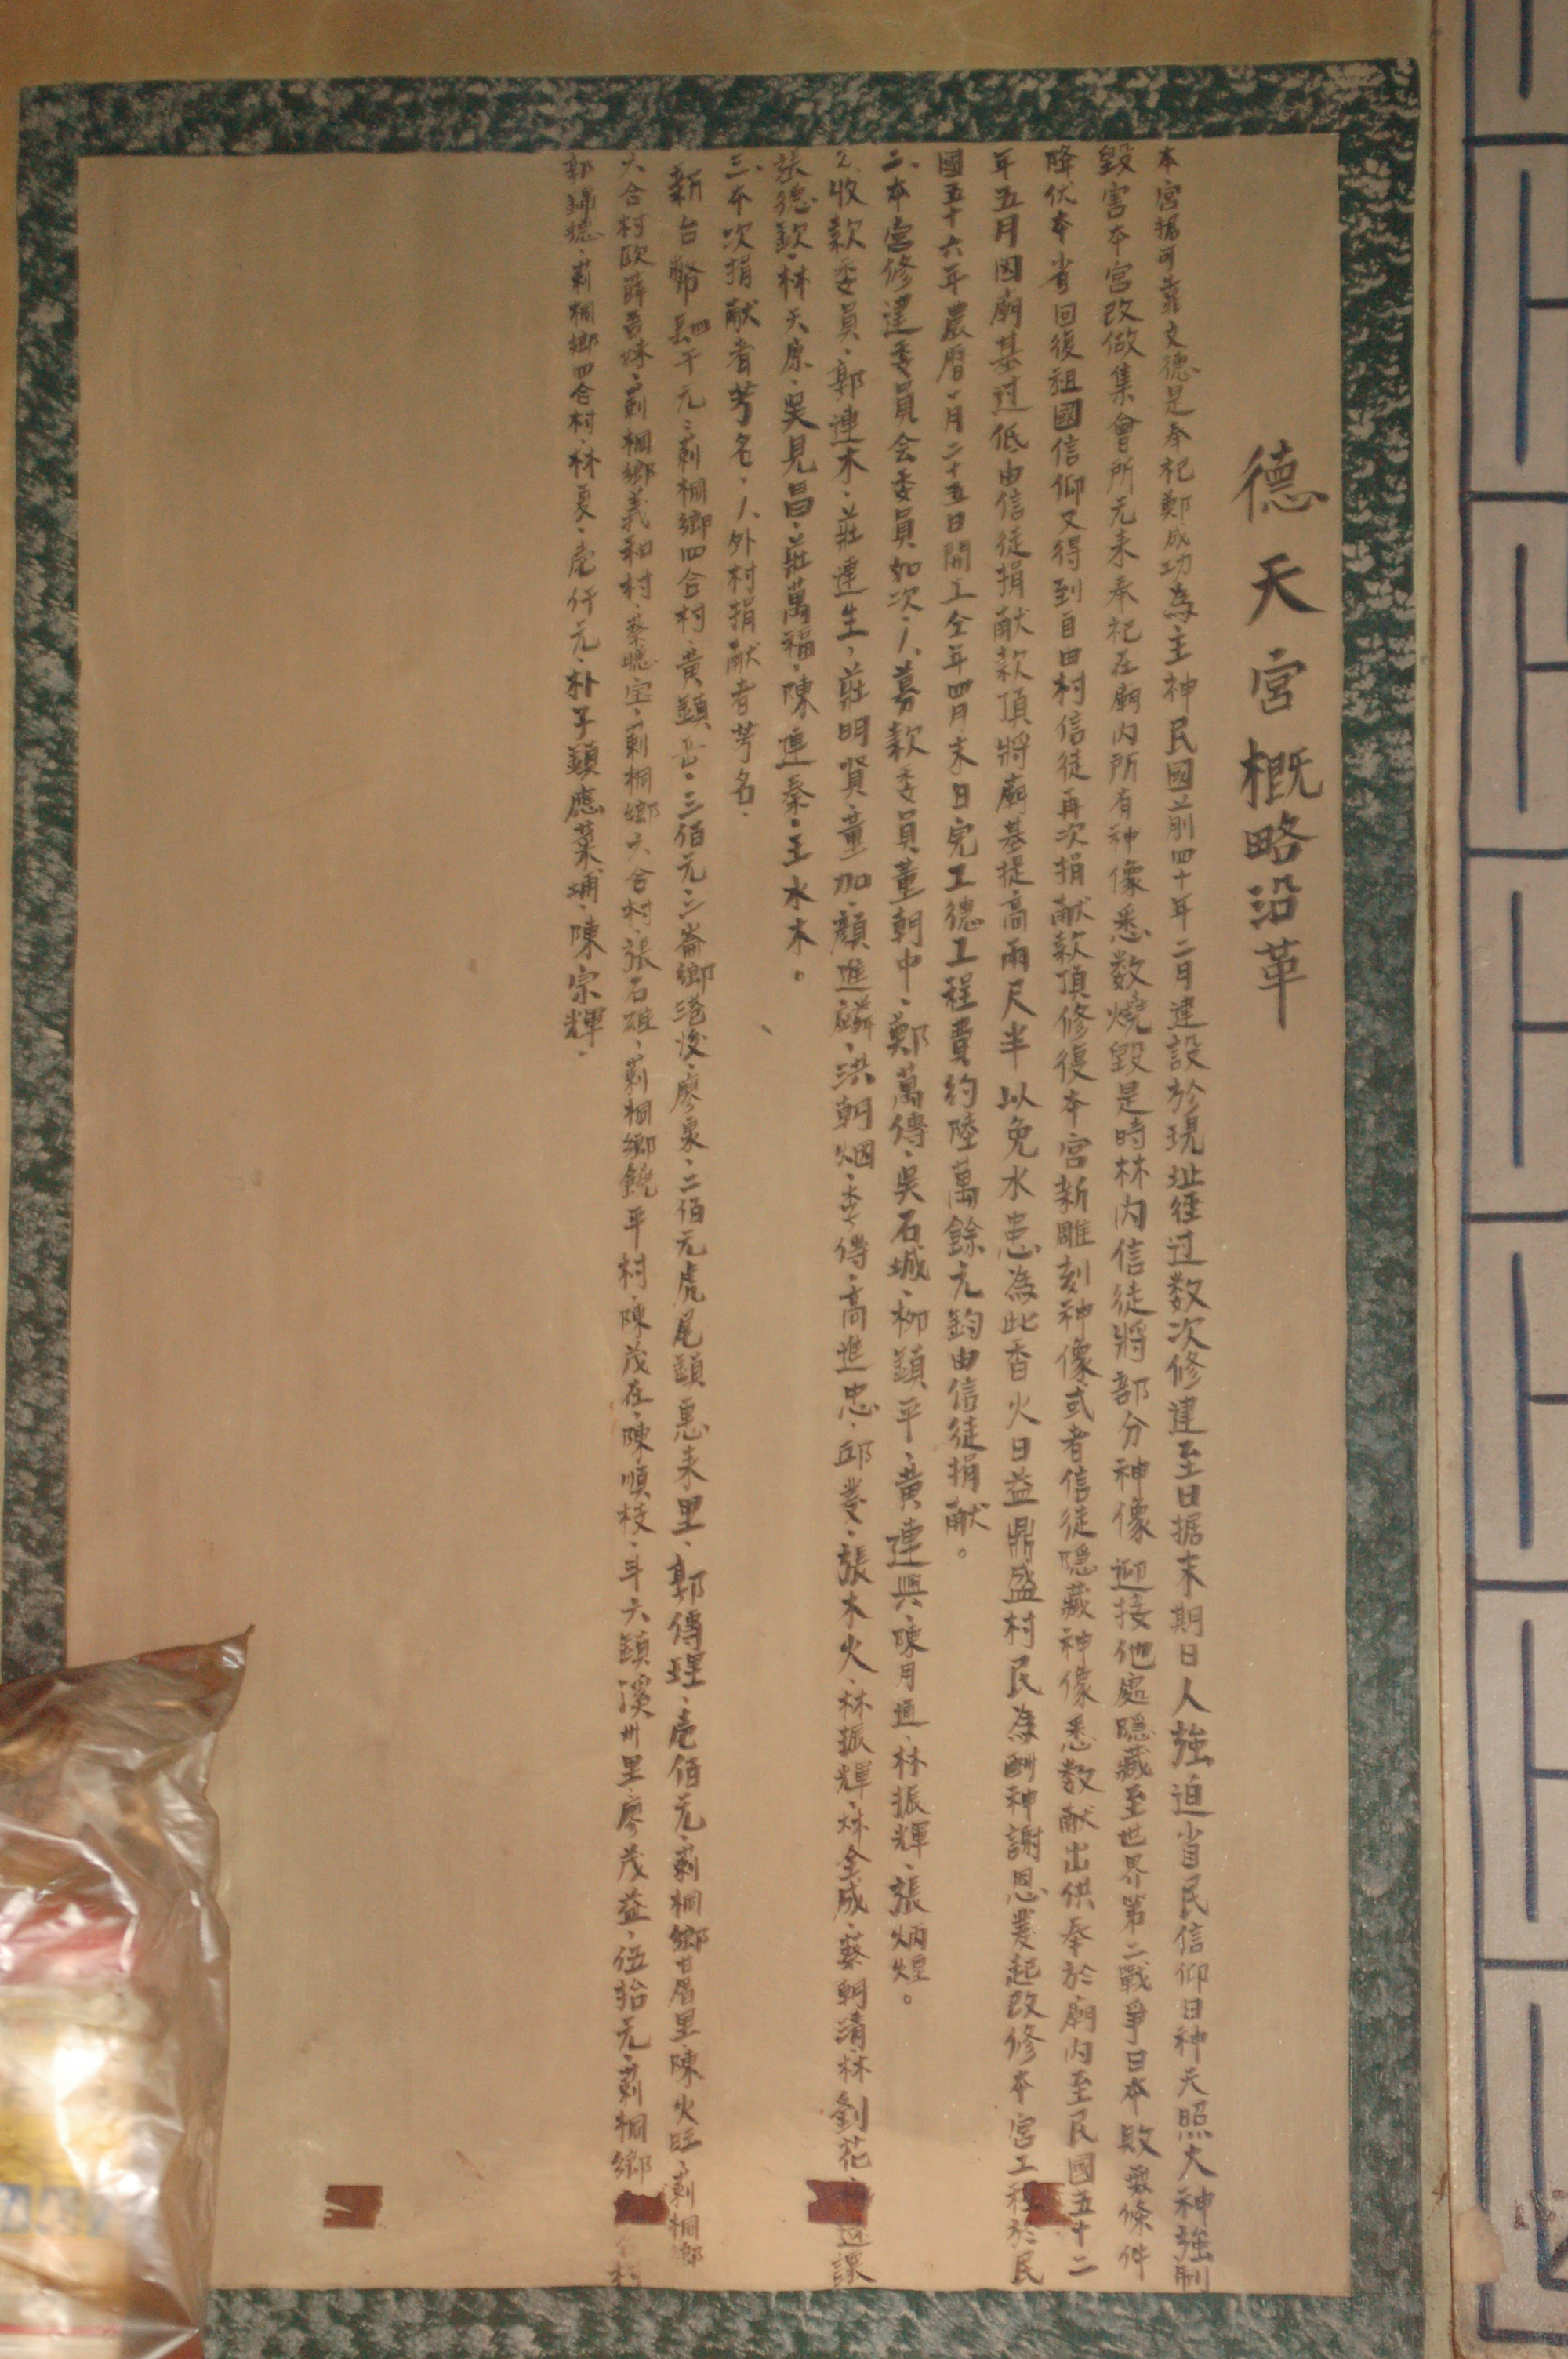 德天宮概略沿革
本宮据可靠文德是奉祀鄭成功為主神民國前四十年二月建設於現址徑过数次修建至日据末期日人強迫省民信仰日神天照大神強制
毀害本宮改做集會所元来奉祀在廟內所有神像悉数燒毀是時林內信徒將部分神像迎接他處隱藏至世界第二戰爭日本敗無條件
降伏本省回復祖國信仰又得到自由村信徒再次捐献款項修復本宮新雕刻神像或者信徒隱藏神像悉数献出供奉於廟內至民國五十二
年五月因廟基过低由信徒捐献款項將廟基提高兩尺半以免水患為此香火日益鼎盛村民為酬神謝恩發起改修本宮工程於民
國五十六年農曆一月二十五日開工仝年四月末日完工德工程費約陸萬餘元鈞由信徒捐献。
二、本宮修建委員会委員如次、1、募款委員董朝中、鄭萬傳、吳石城、柳鎮平、黃連興、陳月通、林振輝、張炳煌。
2、收款委員、郭連木、莊連生、莊明賀、童加、顏進麟、洪朝烟、李傳、高進忠、邱發、張木火、林振輝、林金成、蔡朝清、林劉花、
張德欽、林天原、吳見昌、莊萬福、陳連泰、王水木。
三、本次捐献者芳名、1、外村捐献者芳名、
新台幣四千元、莿桐鄉四合村、黃鎮岳、三佰元、二崙鄉港後、廖泉、二佰元虎尾鎮惠来里、郭傳理、壱佰元、莿桐鄉甘厝里、陳火旺、莿桐鄉
六合村欧薛吾妹、莿桐鄉義和村、蔡聰宝、莿桐鄉六合村、張石雄、莿桐鄉饒平村、陳茂在、陳順枝、斗六鎮溪州里、廖茂益、伍拾元、莿桐鄉村
郭錦德、莿桐鄉四合村、林夏、壱仟元、朴子鎮應菜埔、陳宗輝、